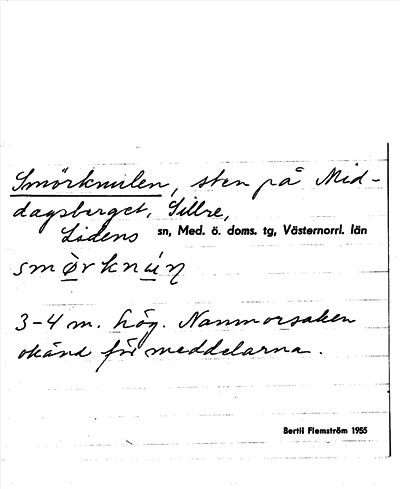 Smörknulen, sten på Mid-
dagsberget, Sillre,
Lidens sn, Med. ö. doms. tg, Västernorrl. län
smørknúŋ
3-4 m. hög. Namnorsaken
okänd för meddelarna.
Bertil Flemström 1955